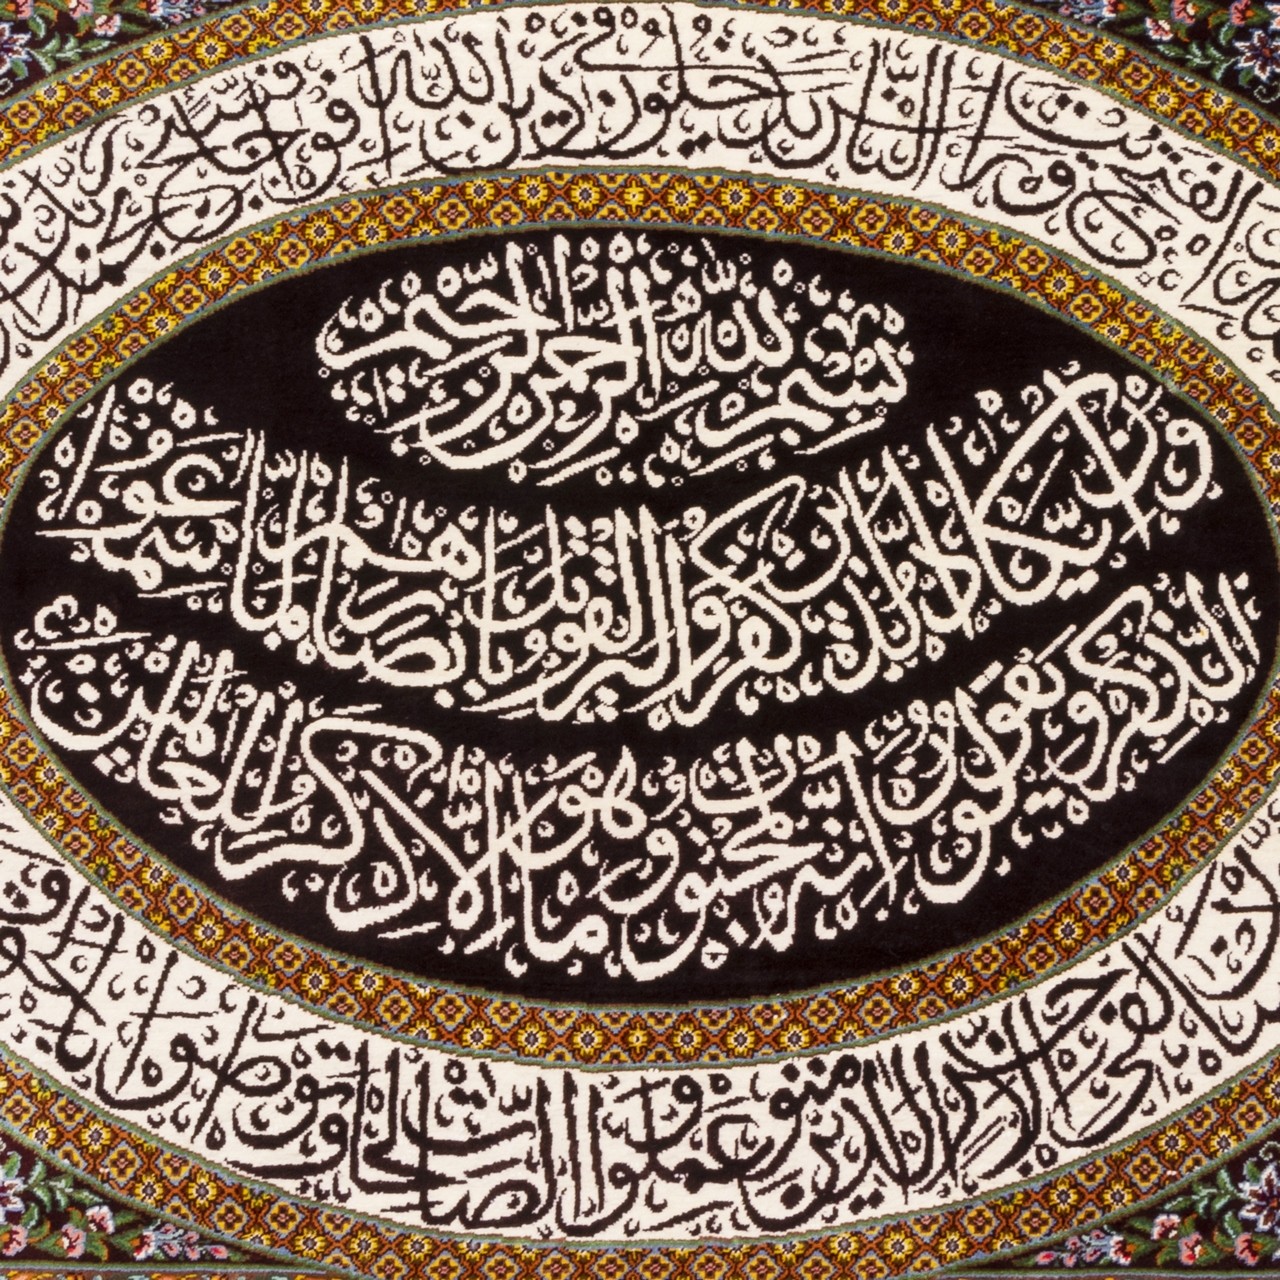 والفتح ورأيت الناس يدخلون في دين الله أفواجا فسبح بحمد ربك
بسم الله الرحمن الرحيم
وإن يكاد الذين كفروا ليزلقونك بأبصارهم لما سمعوا
الذكر ويقولون إنه لمجنون وما هو إلا ذكر للعالمين
لفي خسر إلا الذين آمنوا وعملوا الصالحات وتواصوا